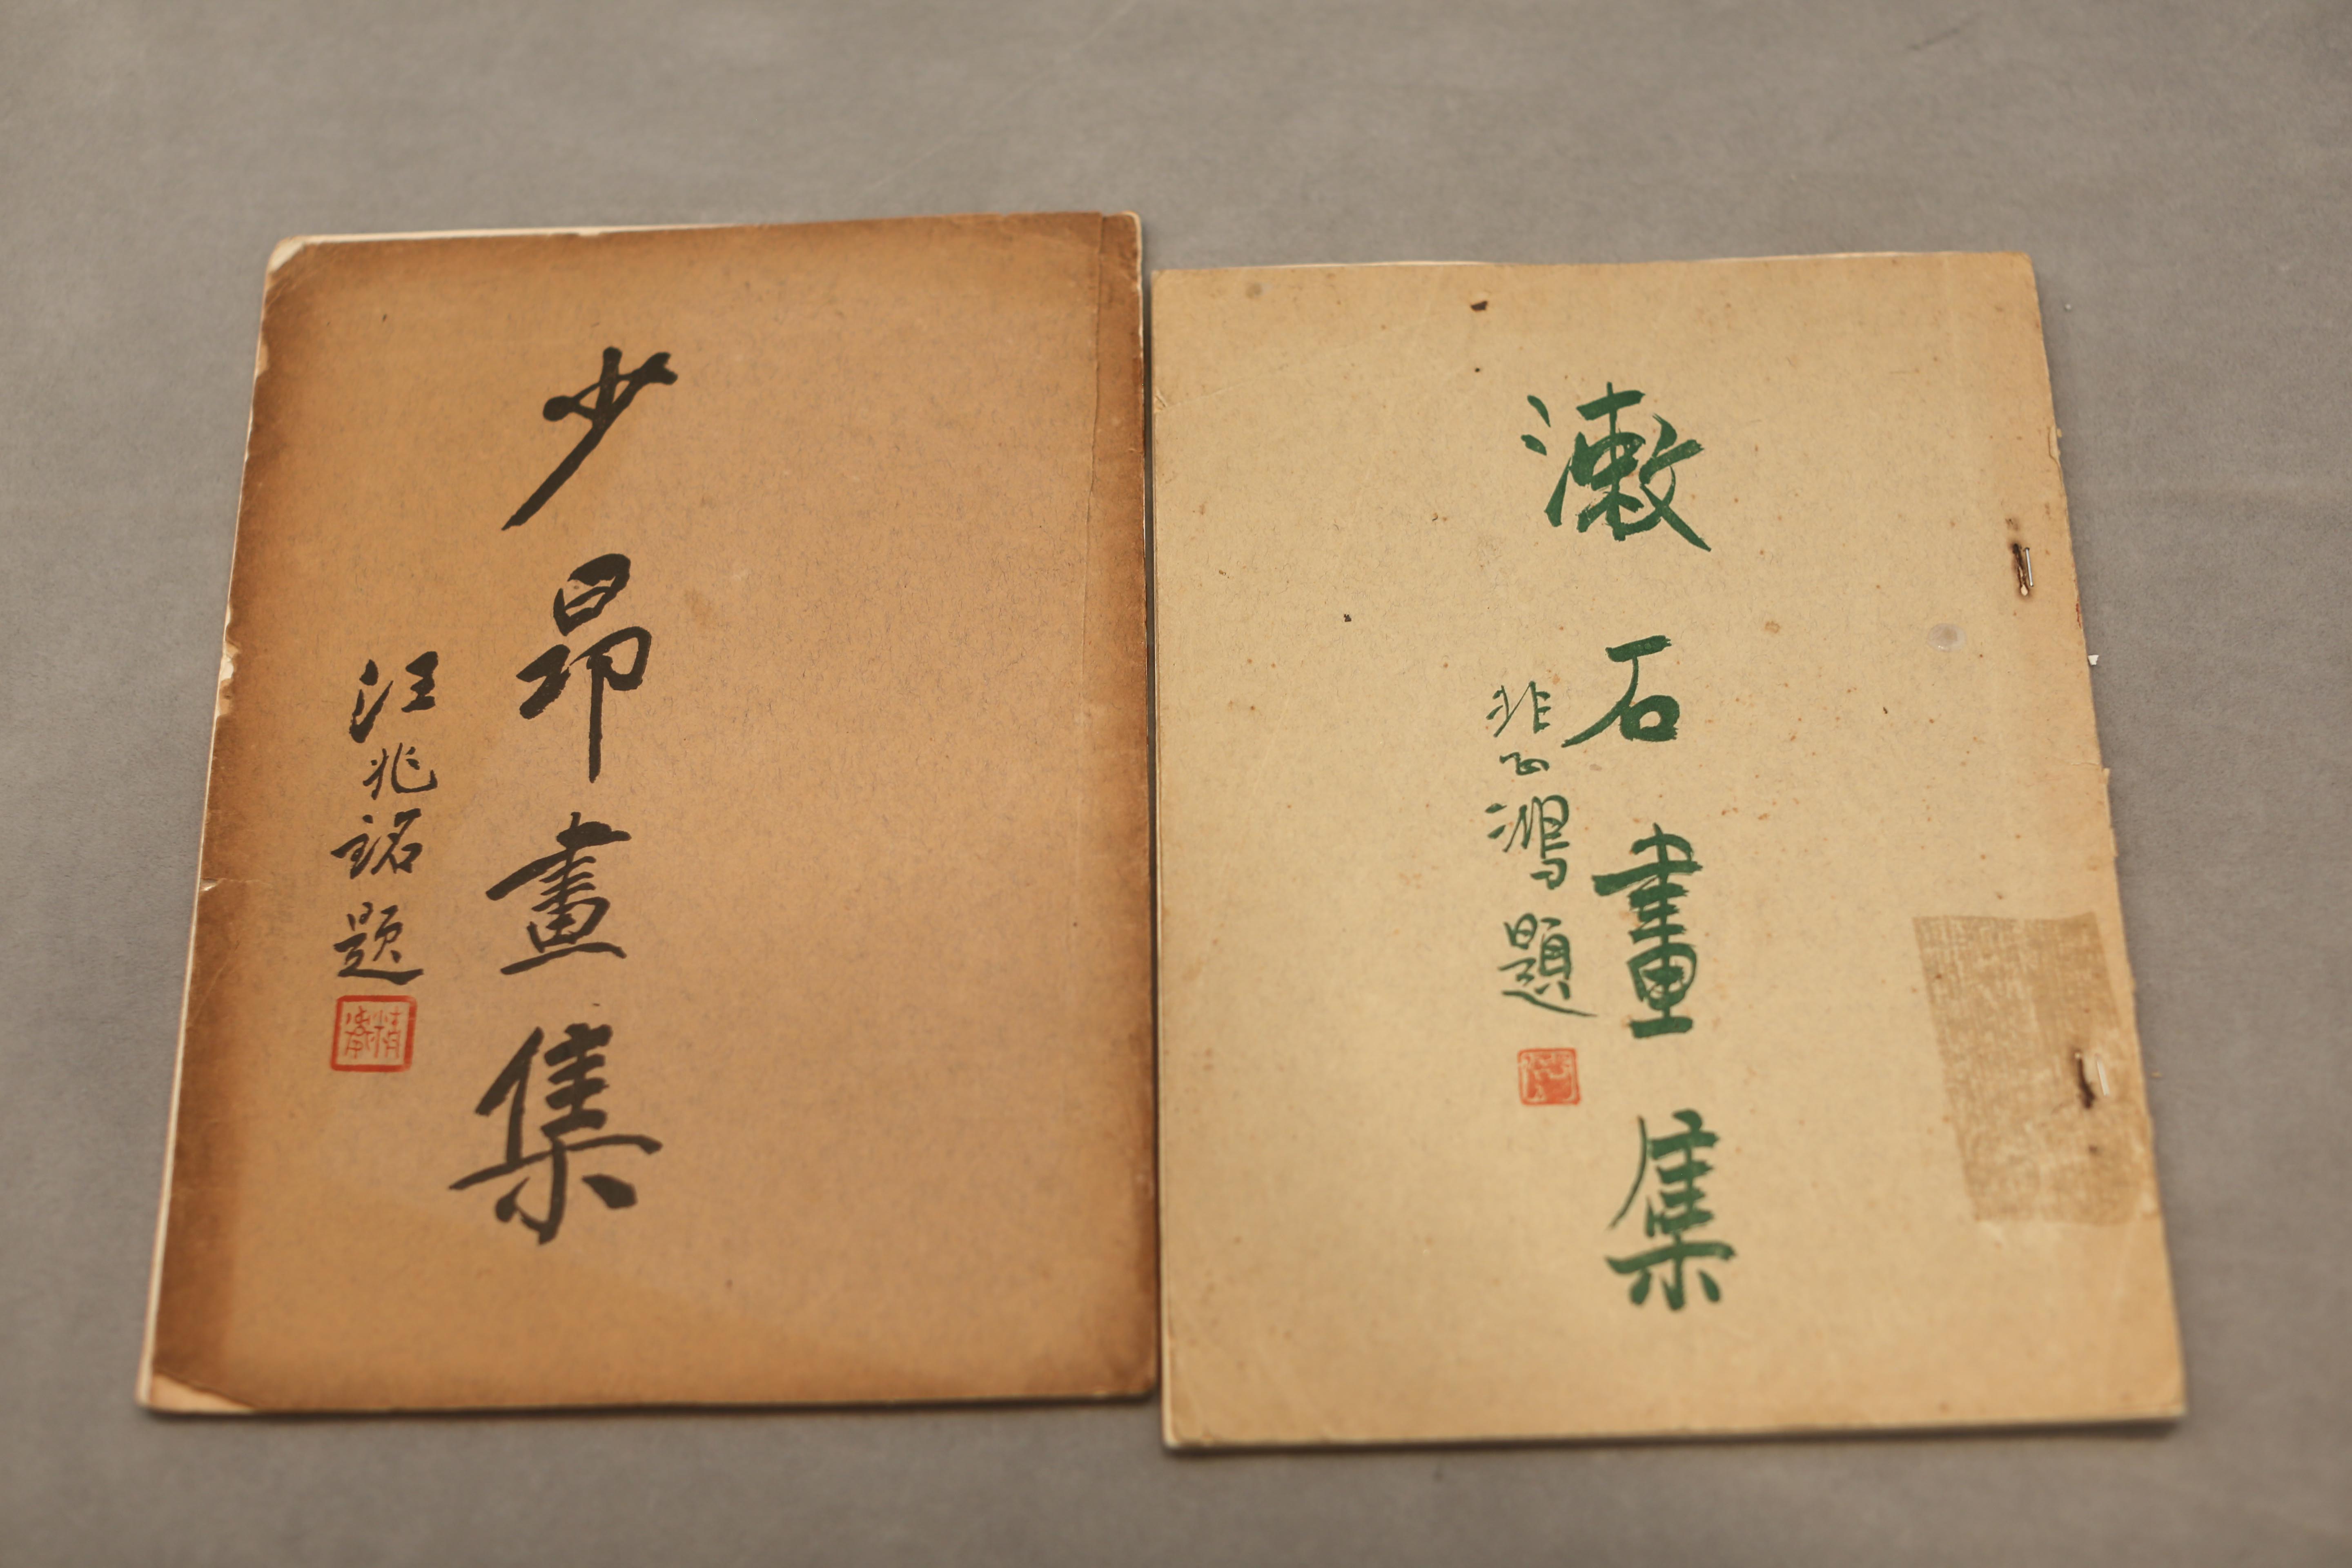 少昂畫集
汪兆銘題
精衛
漱石畫集
悲鴻題